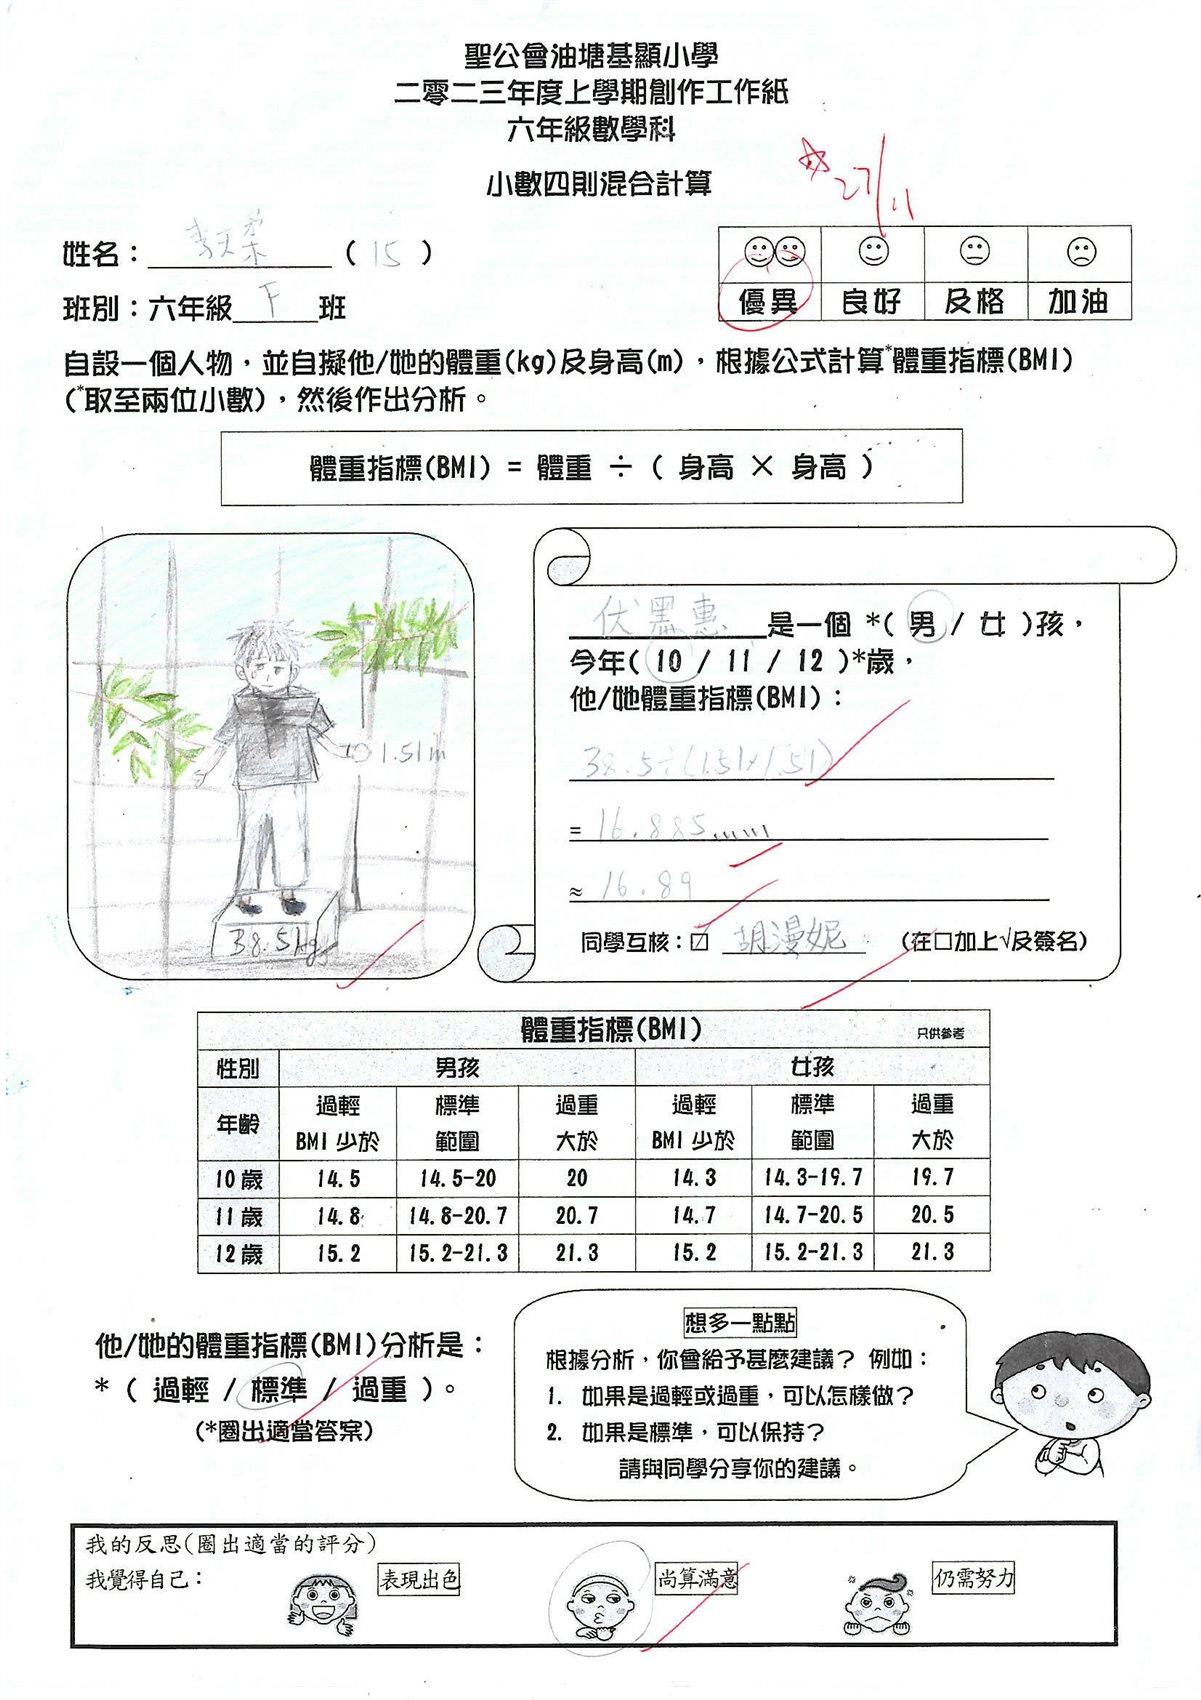 聖公會油塘基顯小學
二零二三年度上學期創作工作紙
六年級數學科
小數四則混合計算
27/11
姓名：李天柔 ( 15 )
班別：六年級 F 班
優異 良好 及格 加油
自設一個人物，並自擬他/她的體重(kg)及身高(m)，根據公式計算*體重指標(BMI)
(*取至兩位小數)，然後作出分析。
體重指標(BMI) = 體重 ÷ ( 身高 × 身高 )
1.51m
38.5kg
伏黑惠是一個 *( 男 / 女 )孩，
今年( 10 / 11 / 12 )*歲，
他/她體重指標(BMI)：
38.5÷(1.51×1.51)
= 16.885......
≈ 16.89
同學互核：☑ 胡漫妮 (在□加上√及簽名)
體重指標(BMI) 只供參考
性別 男孩 女孩
年齡 過輕 BMI 少於 標準 範圍 過重 大於 過輕 BMI 少於 標準 範圍 過重 大於
10 歲 14.5 14.5-20 20 14.3 14.3-19.7 19.7
11 歲 14.8 14.8-20.7 20.7 14.7 14.7-20.5 20.5
12 歲 15.2 15.2-21.3 21.3 15.2 15.2-21.3 21.3
他/她的體重指標(BMI)分析是：
* ( 過輕 / 標準 / 過重 )。
(*圈出適當答案)
想多一點點
根據分析，你會給予甚麼建議？ 例如：
1. 如果是過輕或過重，可以怎樣做？
2. 如果是標準，可以保持？
請與同學分享你的建議。
我的反思(圈出適當的評分)
我覺得自己： 表現出色 尚算滿意 仍需努力